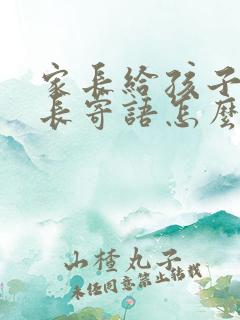 家长给孩子
长寄語怎麼
山楂丸子
未经同意禁止转载